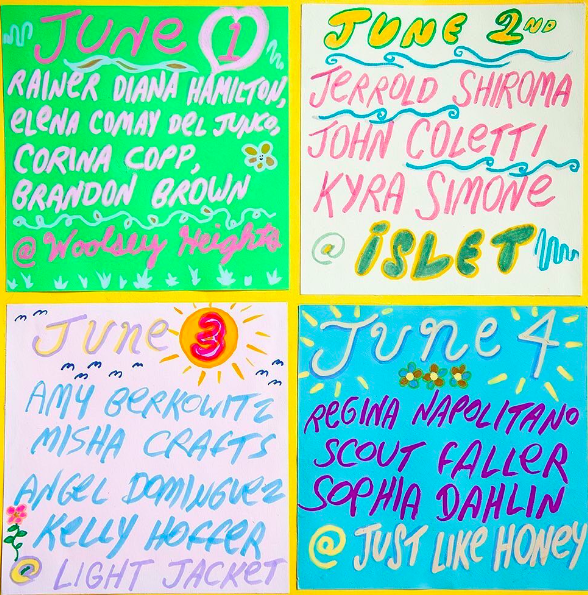 JUNE 1
RAINER DIANA HAMILTON,
ELENA COMAY DEL JUNCO,
CORINA COPP,
BRANDON BROWN
@ Woolsey Heights
JUNE 2ND
JERROLD SHIROMA
JOHN COLETTI
KYRA SIMONE
@ ISLET
June 3
AMY BERKOWITZ
MISHA CRAFTS
ANGEL DOMINGUEZ
KELLY HOFFER
@ LIGHT JACKET
June 4
REGINA NAPOLITANO
SCOUT FALLER
SOPHIA DAHLIN
@ JUST LIKE HONEY